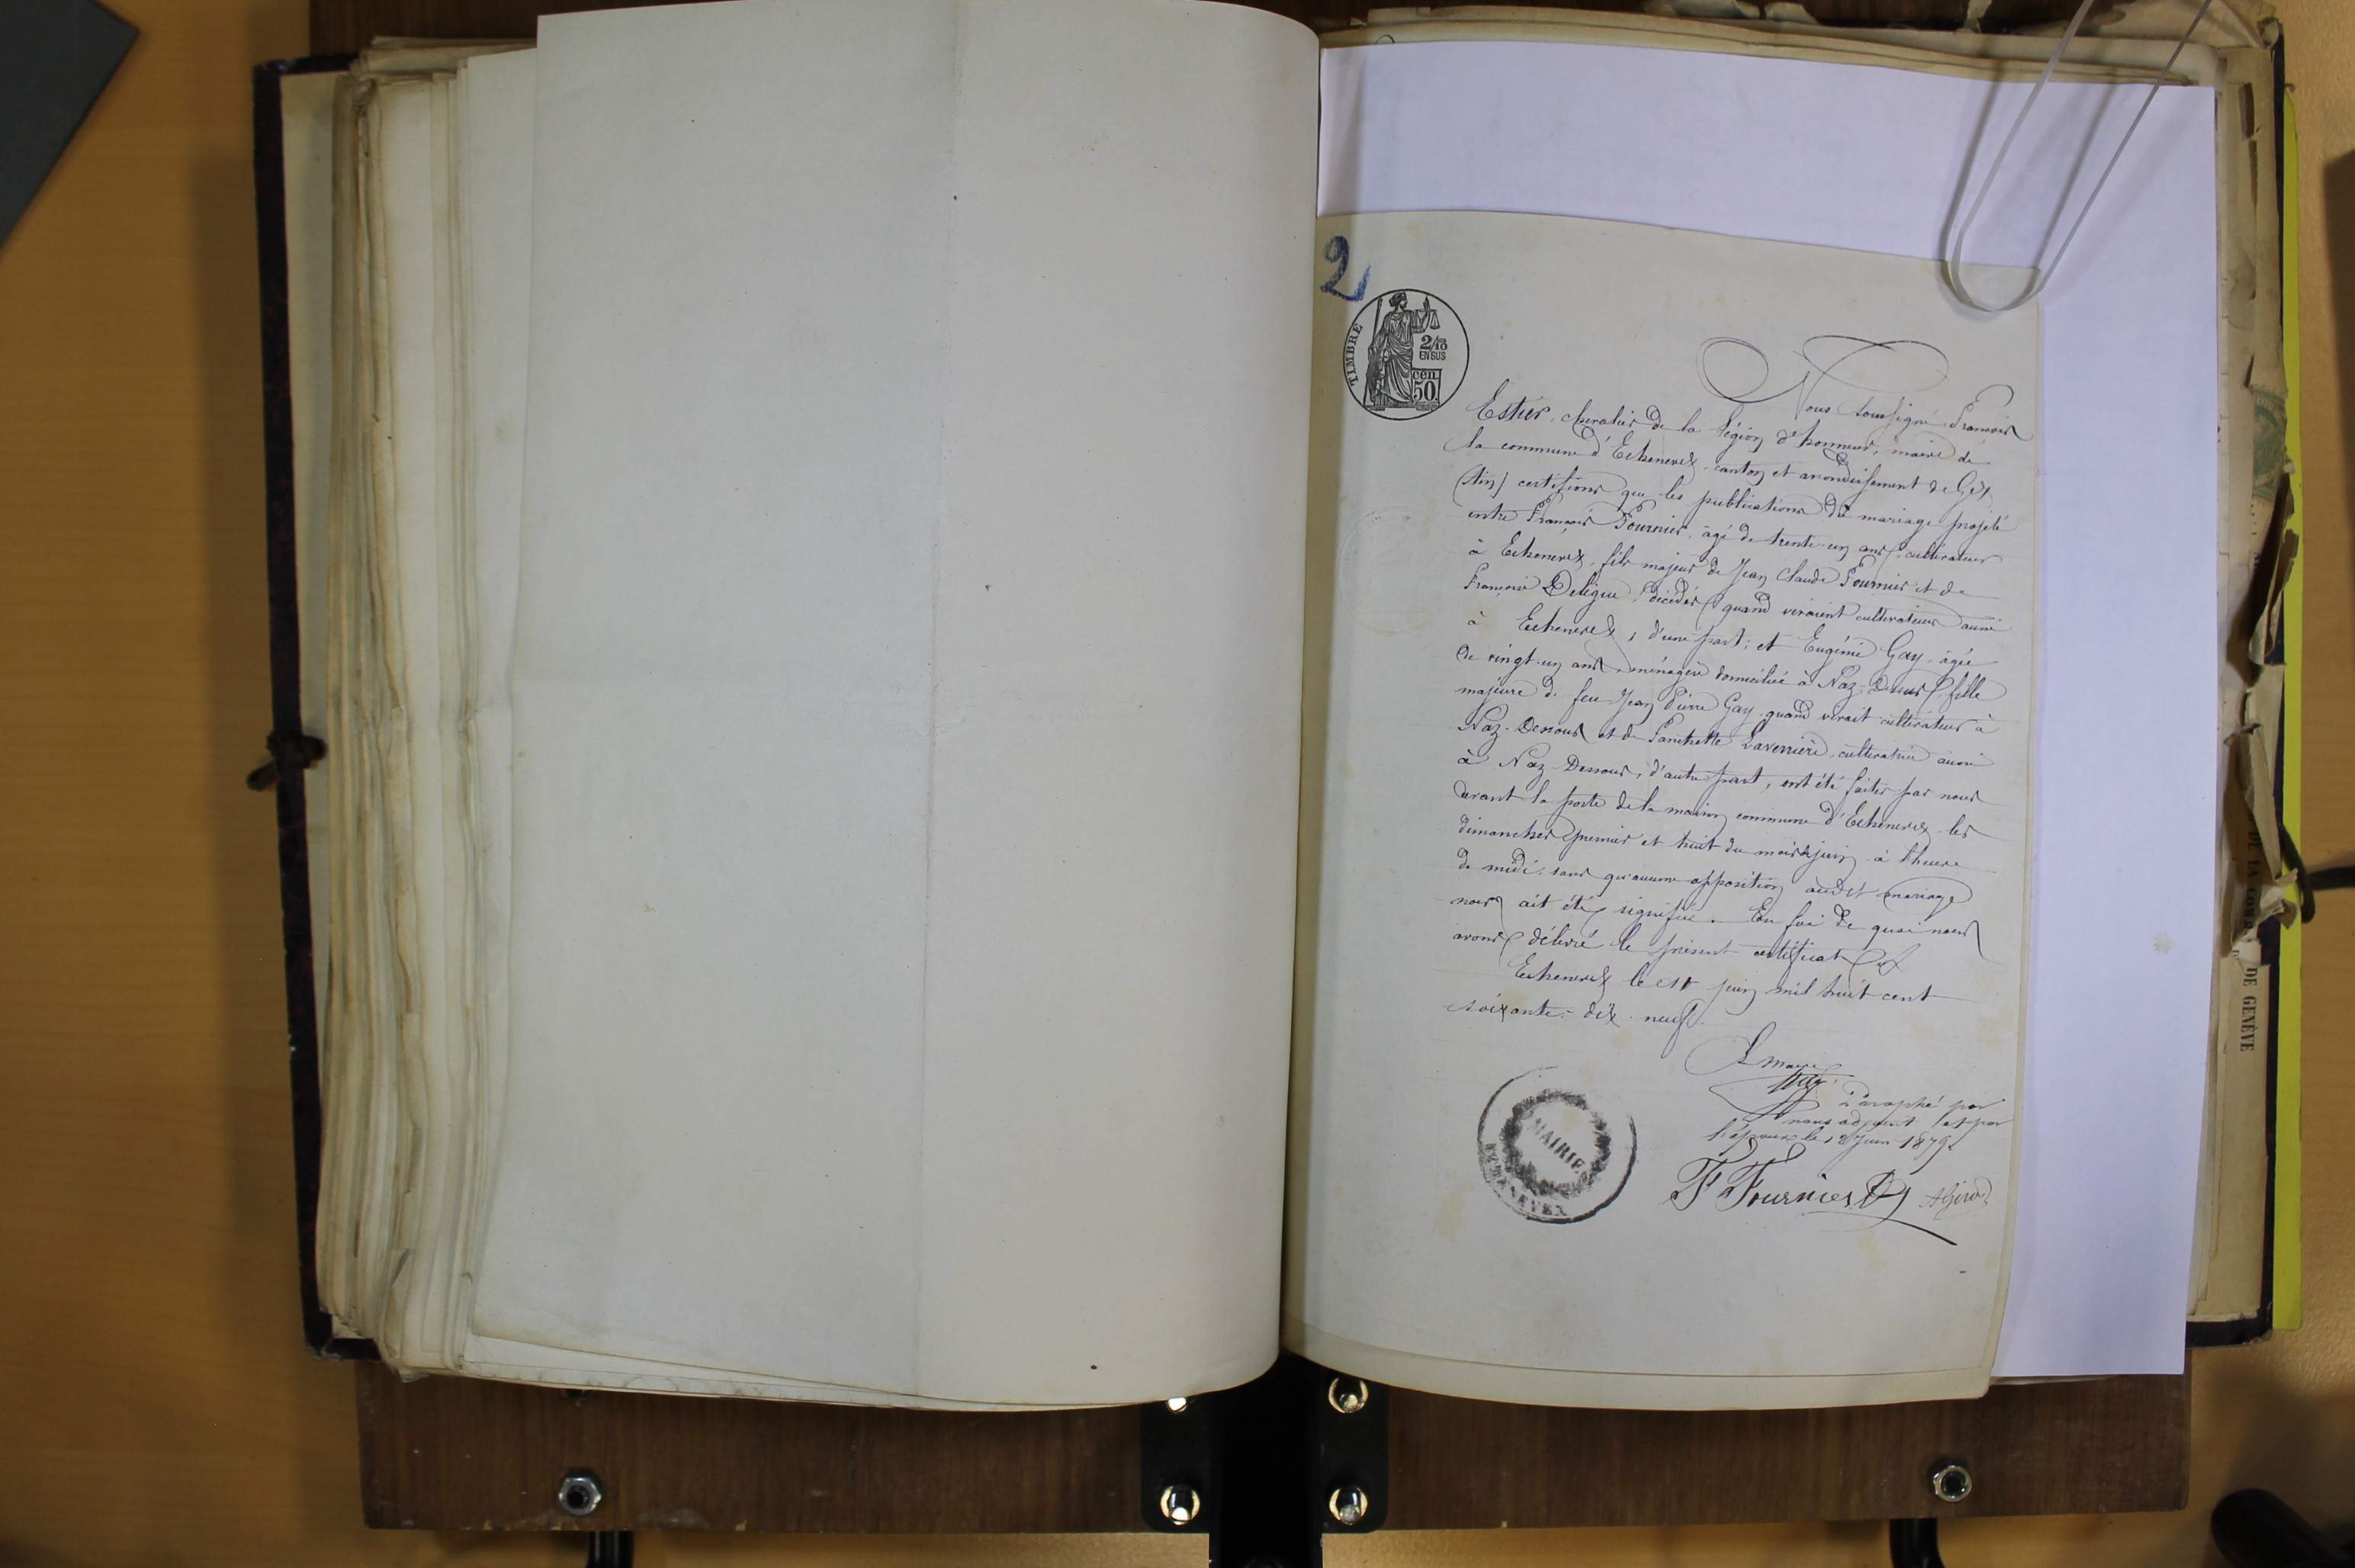 2
TIMBRE
2/10
EN SUS
cen.
50
Nous soussigné François
Estier, chevalier de la Légion d'honneur, maire de
la commune d'Echenevex, canton et arrondissement de Gex,
(Ain) certifions que les publications du mariage projeté
entre François Fournier, âgé de trente-un ans, cultivateur
à Echenevex, fils majeur de Jean Claude Fournier et de
Françoise Deléglise, décédés quand vivaient cultivateurs aussi
à Echenevex, d'une part; et Eugénie Gay, âgée
de vingt-un ans, ménagère domiciliée à Naz-Dessus, fille
majeure de feu Jean Pierre Gay quand vivait cultivateur à
Naz-Dessous et de Fanchette Laverrière, cultivatrice aussi
à Naz-Dessous, d'autre part, ont été faites par nous
devant la porte de la maison commune d'Echenevex les
dimanches premier et huit du mois de juin à l'heure
de midi, sans qu'aucune opposition audit mariage
nous ait été signifiée. En foi de quoi nous
avons délivré le présent certificat
Echenevex le 11 juin mil huit cent
soixante-dix-neuf.
Le maire
Paraphé par
nous adjoint et par
l'époux le 12 Juin 1879
F Fournier AGirod
MAIRIE
ECHENEVEX
DE GENÈVE